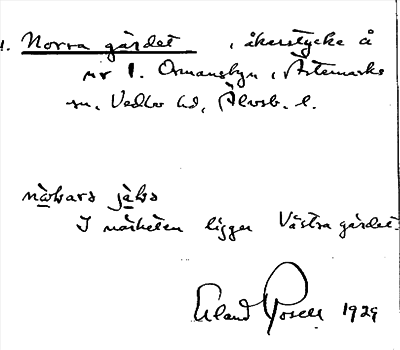 1. Norra gärdet, åkerstycke å
nr 1. Ormansbyn, Ärtemarks
sn. Vedbo hd, Älvsb. l.
I närheten ligger Västra gärdet.
Erland Rosell 1929